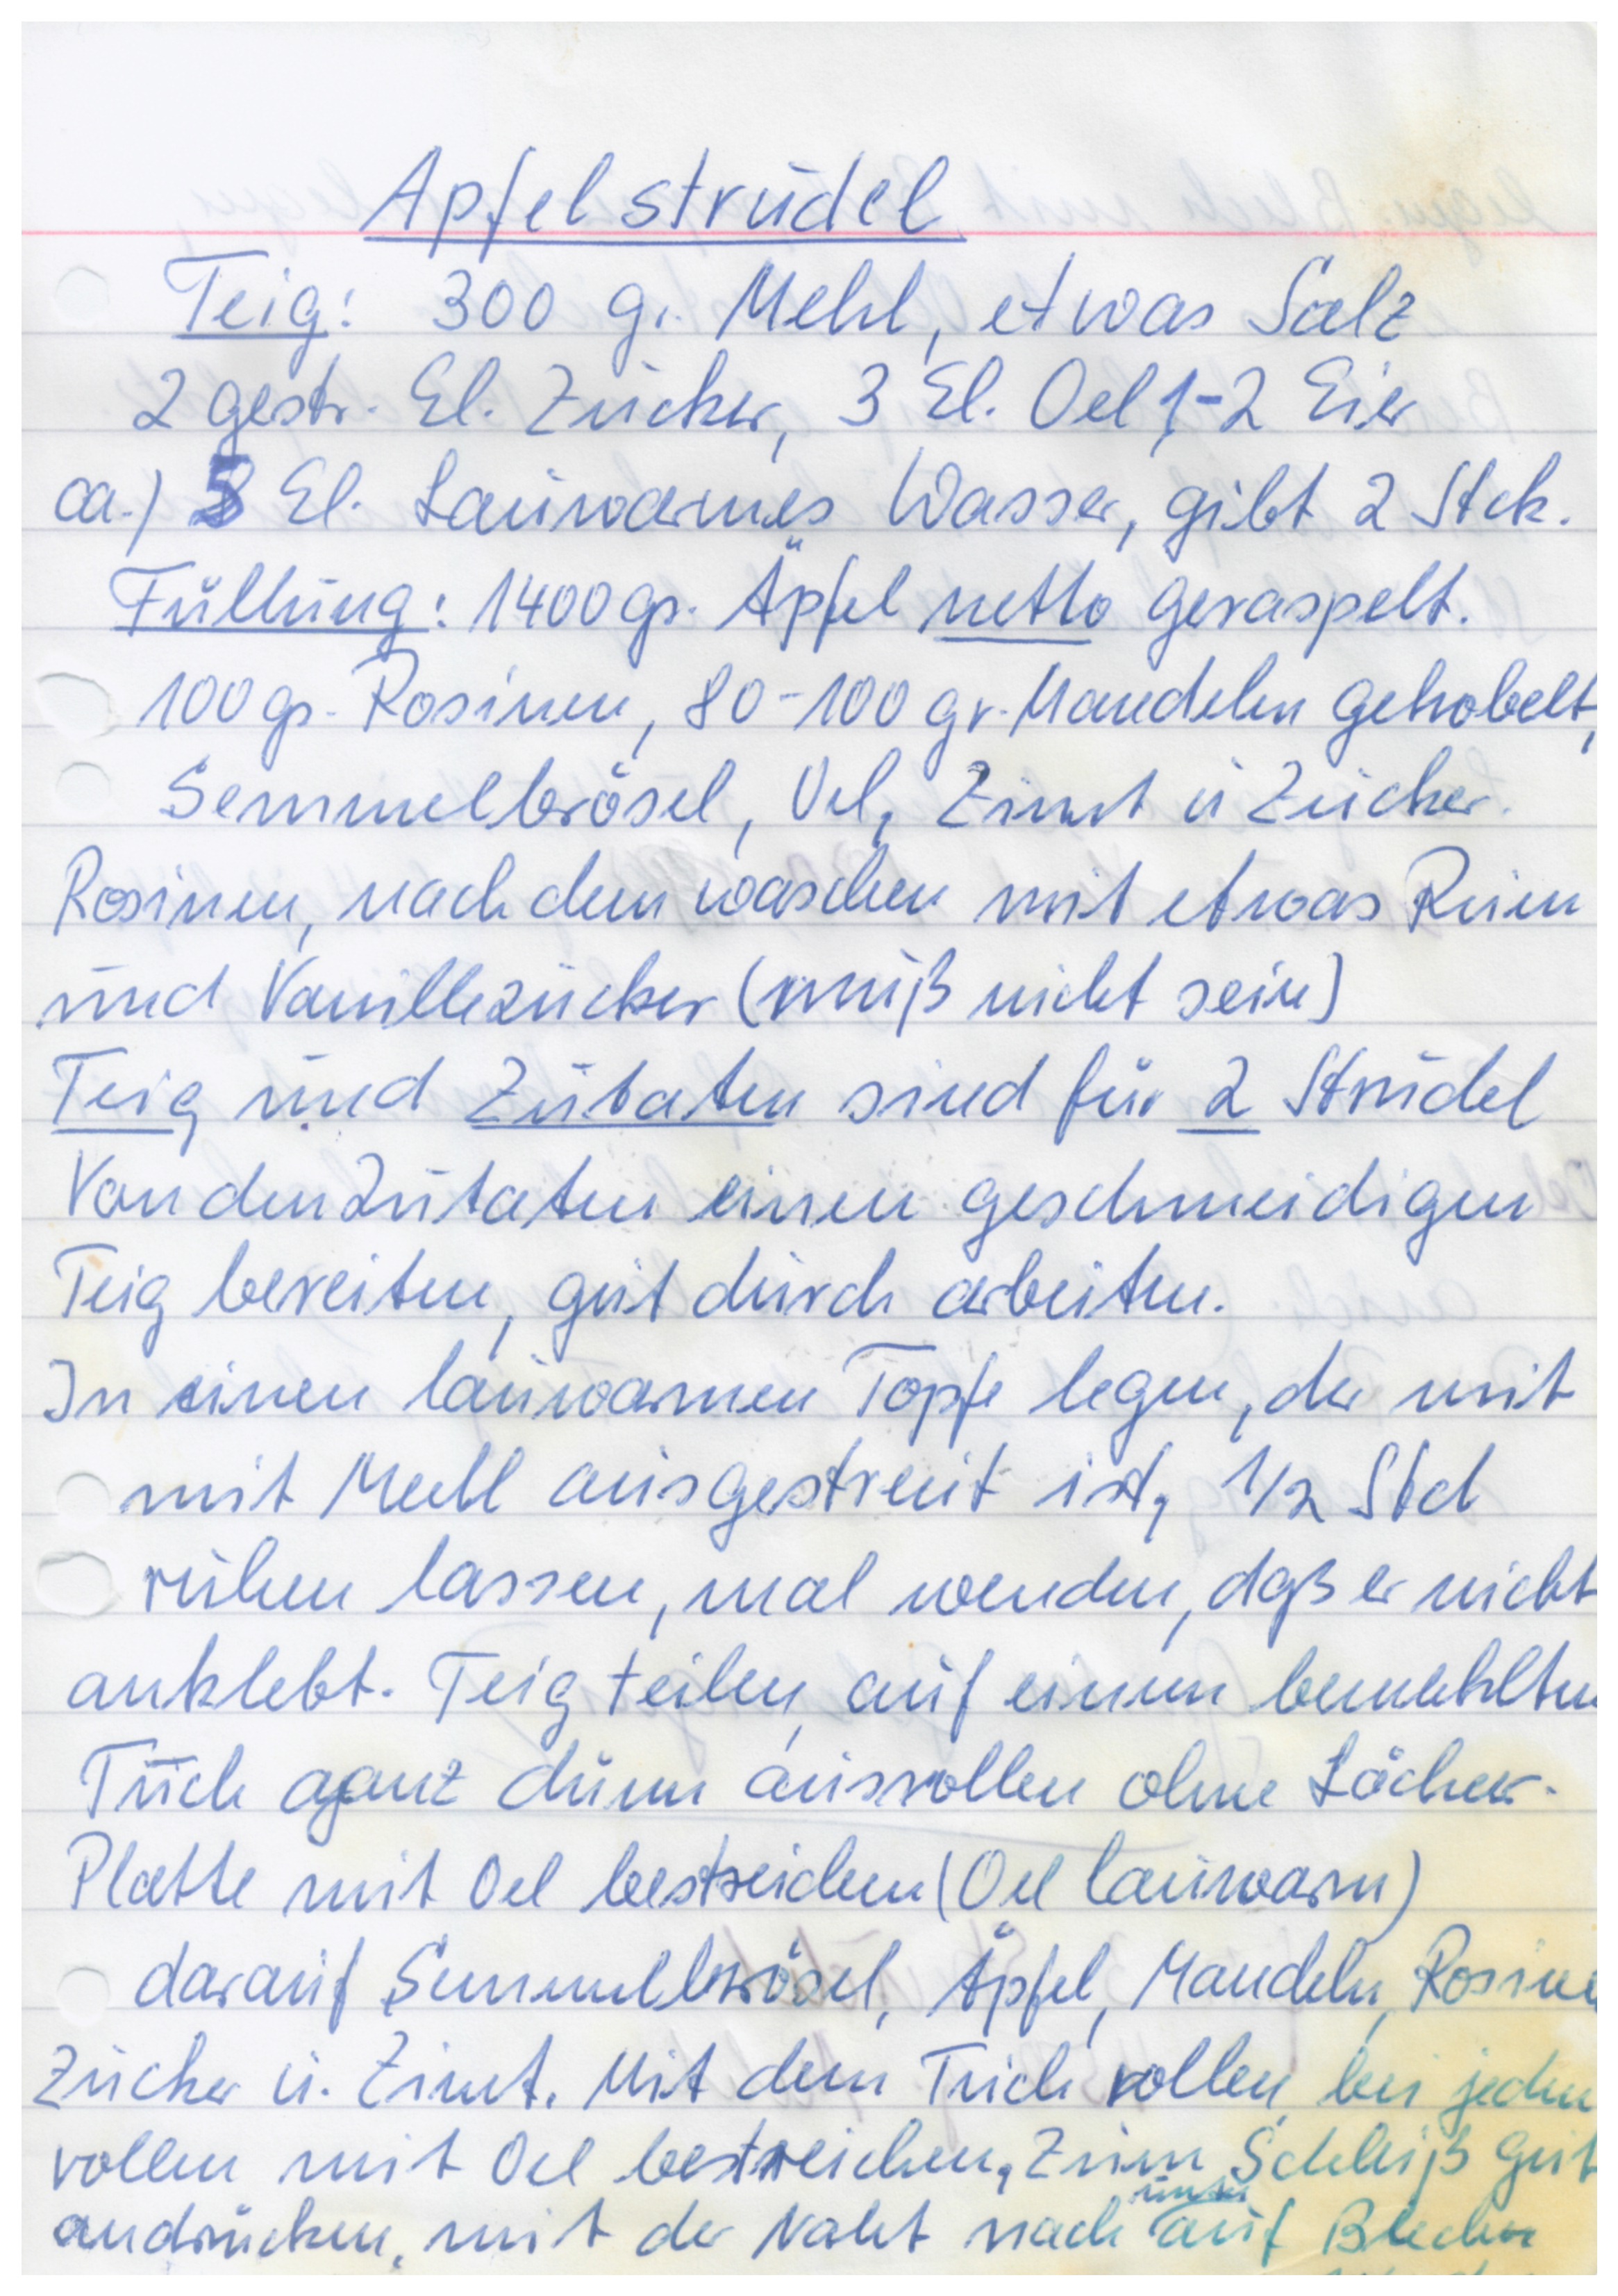 Apfelstrudel
Teig: 300 gr. Mehl, etwas Salz
2 gestr. El. Zucker, 3 El. Oel 1-2 Eier
ca.) 5 El. Lauwarmes Wasser, gibt 2 Stck.
Füllung: 1400 gr. Äpfel netto geraspelt.
100 gr. Rosinen, 80-100 gr. Mandeln gehobelt,
Semmelbrösel, Oel, Zimt u Zucker.
Rosinen, nach dem waschen mit etwas Rum
und Vanillezucker (muß nicht sein)
Teig und Zutaten sind für 2 Strudel
Von den Zutaten einen geschmeidigen
Teig bereiten, gut durch arbeiten.
In einen lauwarmen Topfe legen, der mit
mit Mehl ausgestreut ist, 1/2 Std
ruhen lassen, mal wenden, daß er nicht
anklebt. Teig teilen, auf einem bemehlten
Tuch ganz dünn ausrollen ohne Löcher.
Platte mit Oel bestreichen (Oel lauwarm)
darauf Semmelbrösel, Äpfel, Mandeln, Rosinen
Zucker u. Zimt. Mit dem Tuch rollen, bei jeden
rollen mit Oel bestreichen, Zum Schluß gut
andrücken, mit der Naht nach unten auf Bleche